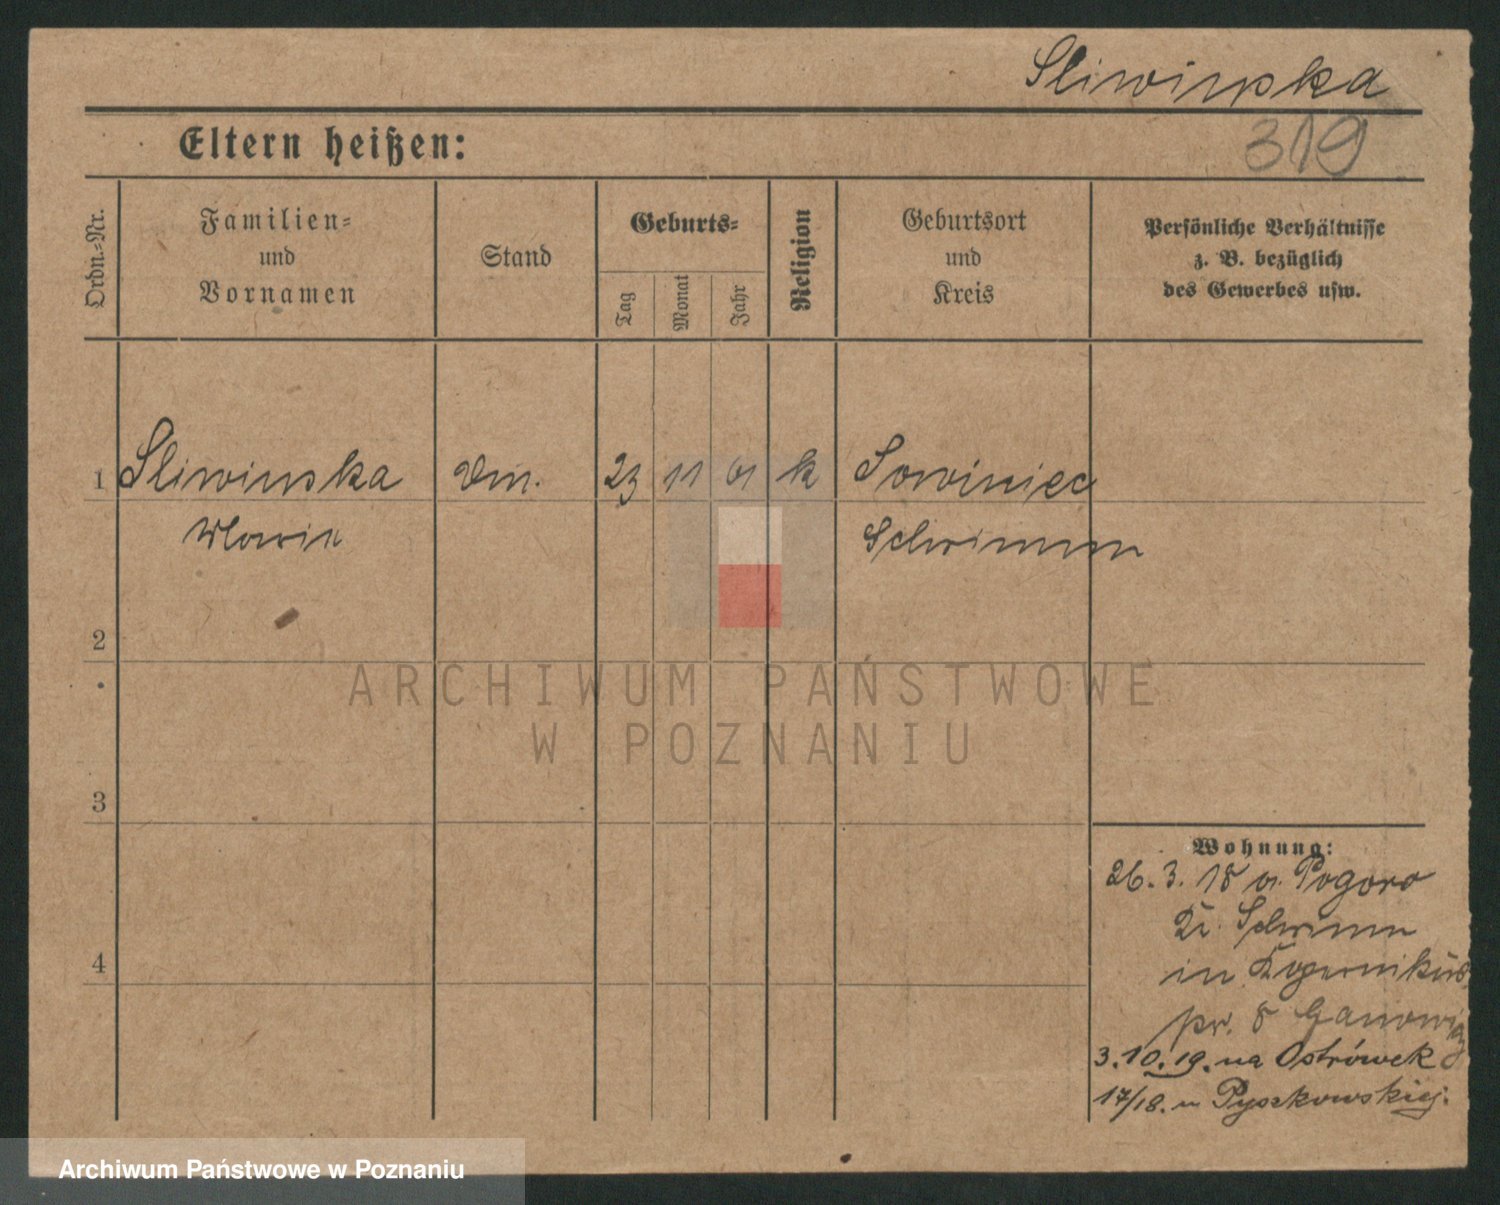 Sliwinska
319
Eltern heißen:
Ordn.-Nr.
Familien-
und
Vornamen
Stand
Geburts-
Tag
Monat
Jahr
Religion
Geburtsort
und
Kreis
Persönliche Verhältnisse
z. B. bezüglich
des Gewerbes usw.
1 Sliwinska Dm. 23 11 01 k Sowiniec
Maria Schrimm
2
3
4
Wohnung:
26. 3. 18 v. Pogoro
Kr. Schrimm
in Kopernikus
pr. 8 Ganowicz
3.10.19. na Ostrówek
17/18. u Pyszkowskiej.
ARCHIWUM PAŃSTWOWE
W POZNANIU
Archiwum Państwowe w Poznaniu